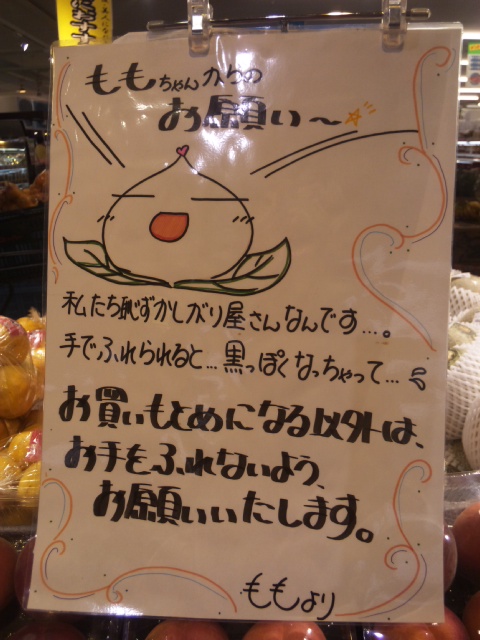 ももちゃんからの
お願い～
私たち恥ずかしがり屋さんなんです…。
手でふれられると…黒っぽくなっちゃって…
お買いもとめになる以外は、
お手をふれないよう、
お願いいたします。
ももより